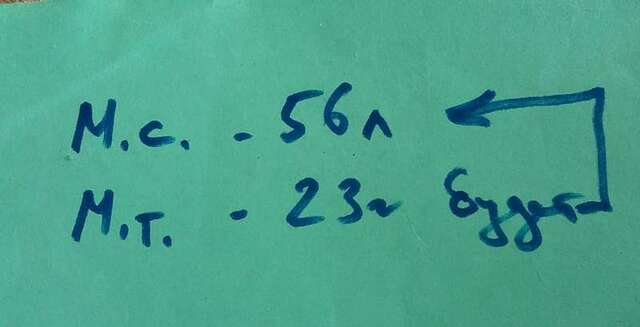 М.с. - 56л
М.т. - 23г будет